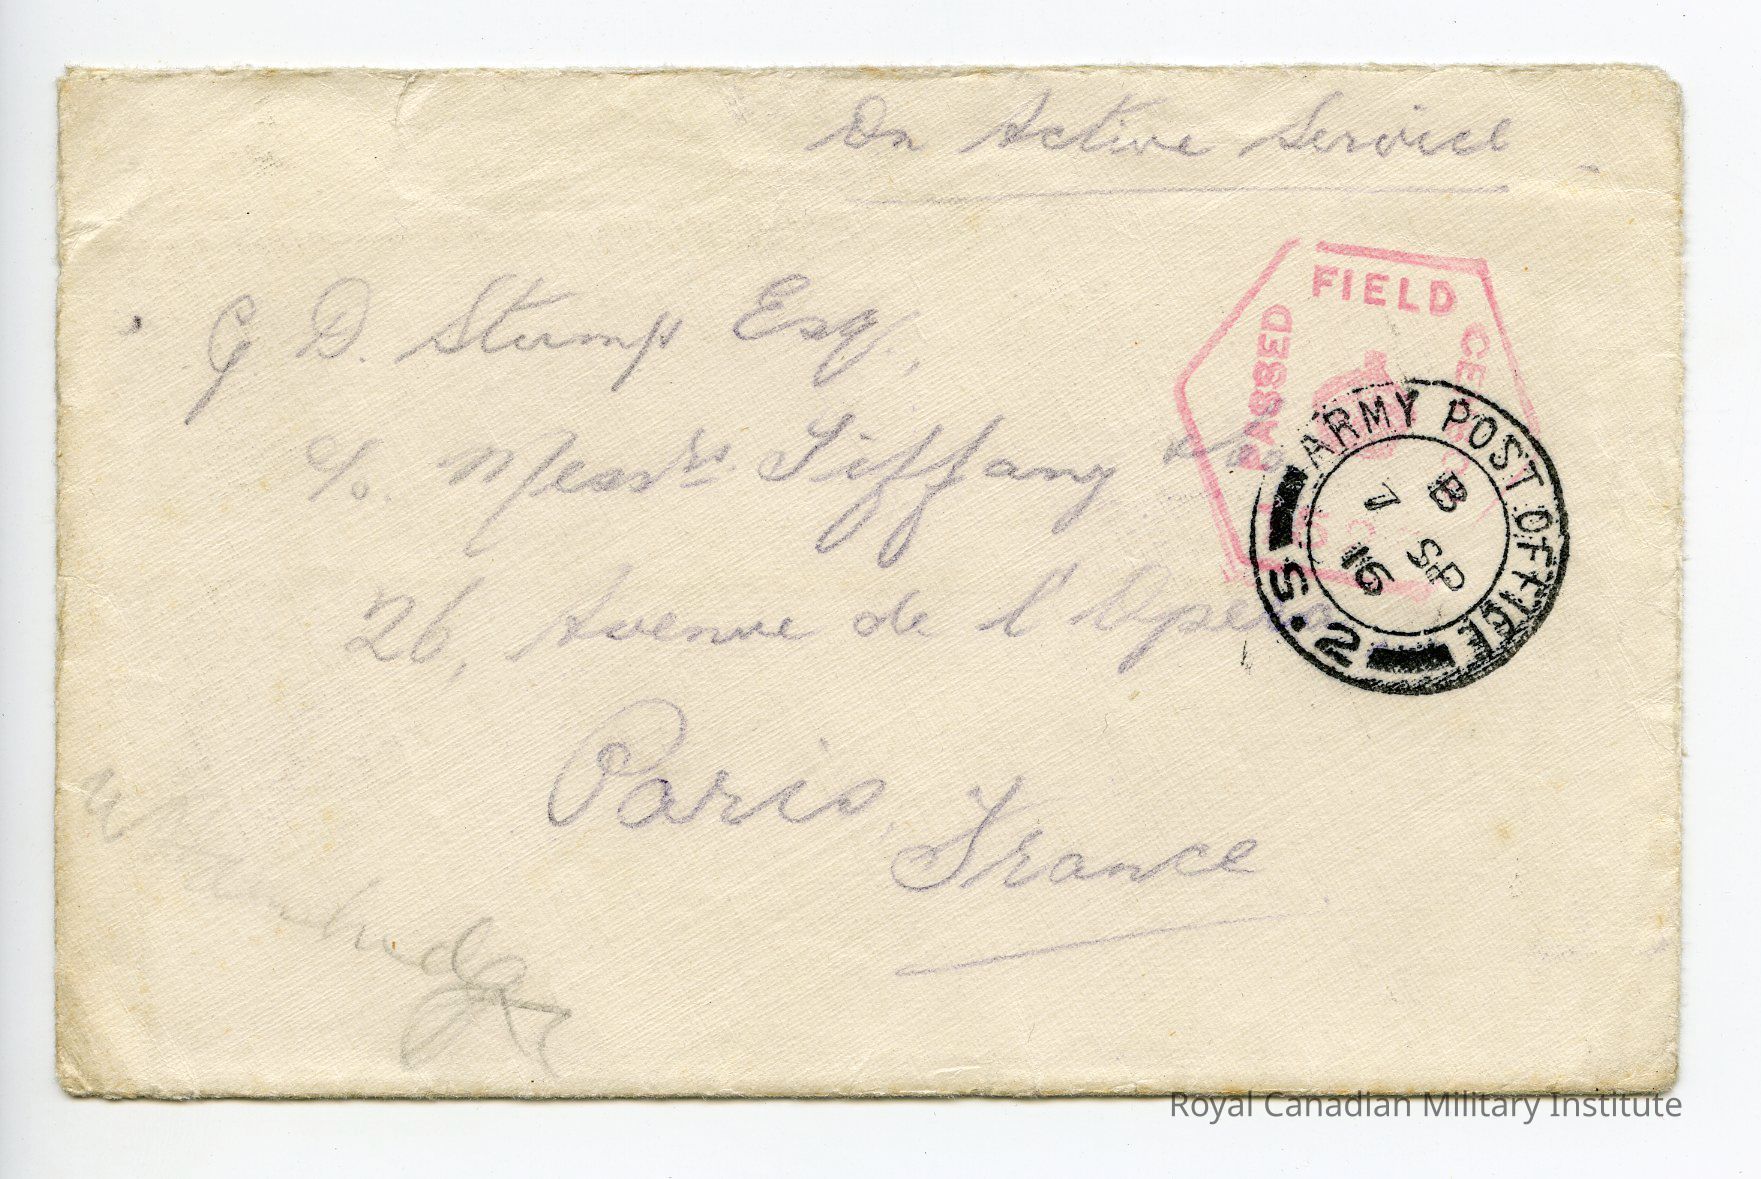 On Active Service
G. D. Stump Esq.,
c/o. Messrs. Tiffany & Co
26, Avenue de l'Opera
Paris,
France
PASSED FIELD
ARMY POST OFFICE
S.2
B
7 SP
16
Royal Canadian Military Institute